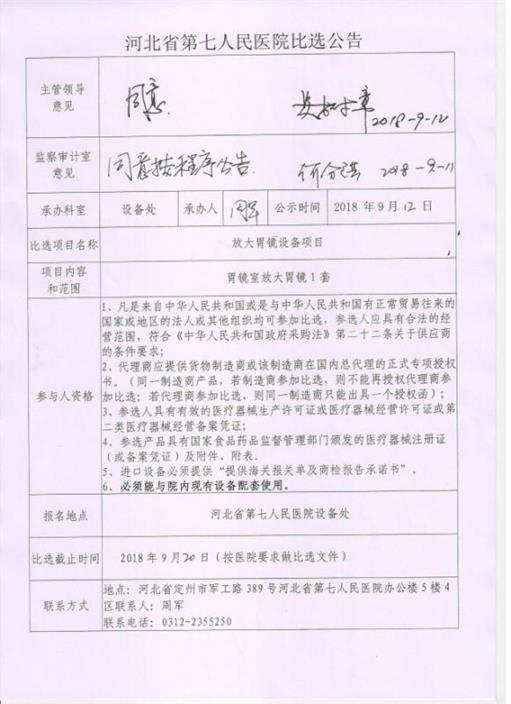 河北省第七人民医院比选公告
主管领导
意见
同意
2018-9-12
监察审计室
意见
同意按程序公告
2018-9-11
承办科室
设备处
承办人
周军
公示时间
2018 年 9 月 12 日
比选项目名称
放大胃镜设备项目
项目内容
和范围
胃镜室放大胃镜 1 套
参与人资格
1、凡是来自中华人民共和国或是与中华人民共和国有正常贸易往来的
国家或地区的法人或其他组织均可参加比选，参选人应具有合法的经
营范围，符合《中华人民共和国政府采购法》第二十二条关于供应商
的条件要求；
2、代理商应提供货物制造商或该制造商在国内总代理的正式专项授权
书。（同一制造商产品，若制造商参加比选，则不能再授权代理商参
加比选；若代理商参加比选，则同一制造商只能出具一个授权函）；
3、参选人具有有效的医疗器械生产许可证或医疗器械经营许可证或第
二类医疗器械经营备案凭证；
4、参选产品具有国家食品药品监督管理部门颁发的医疗器械注册证
（或备案凭证）及附件、附表。
5、进口设备必须提供“提供海关报关单及商检报告承诺书”。
6、必须能与院内现有设备配套使用。
报名地点
河北省第七人民医院设备处
比选截止时间
2018 年 9 月 20 日（按医院要求做比选文件）
联系方式
地点：河北省定州市军工路 389 号河北省第七人民医院办公楼 5 楼 4
区联系人：周军
联系电话：0312-2355250